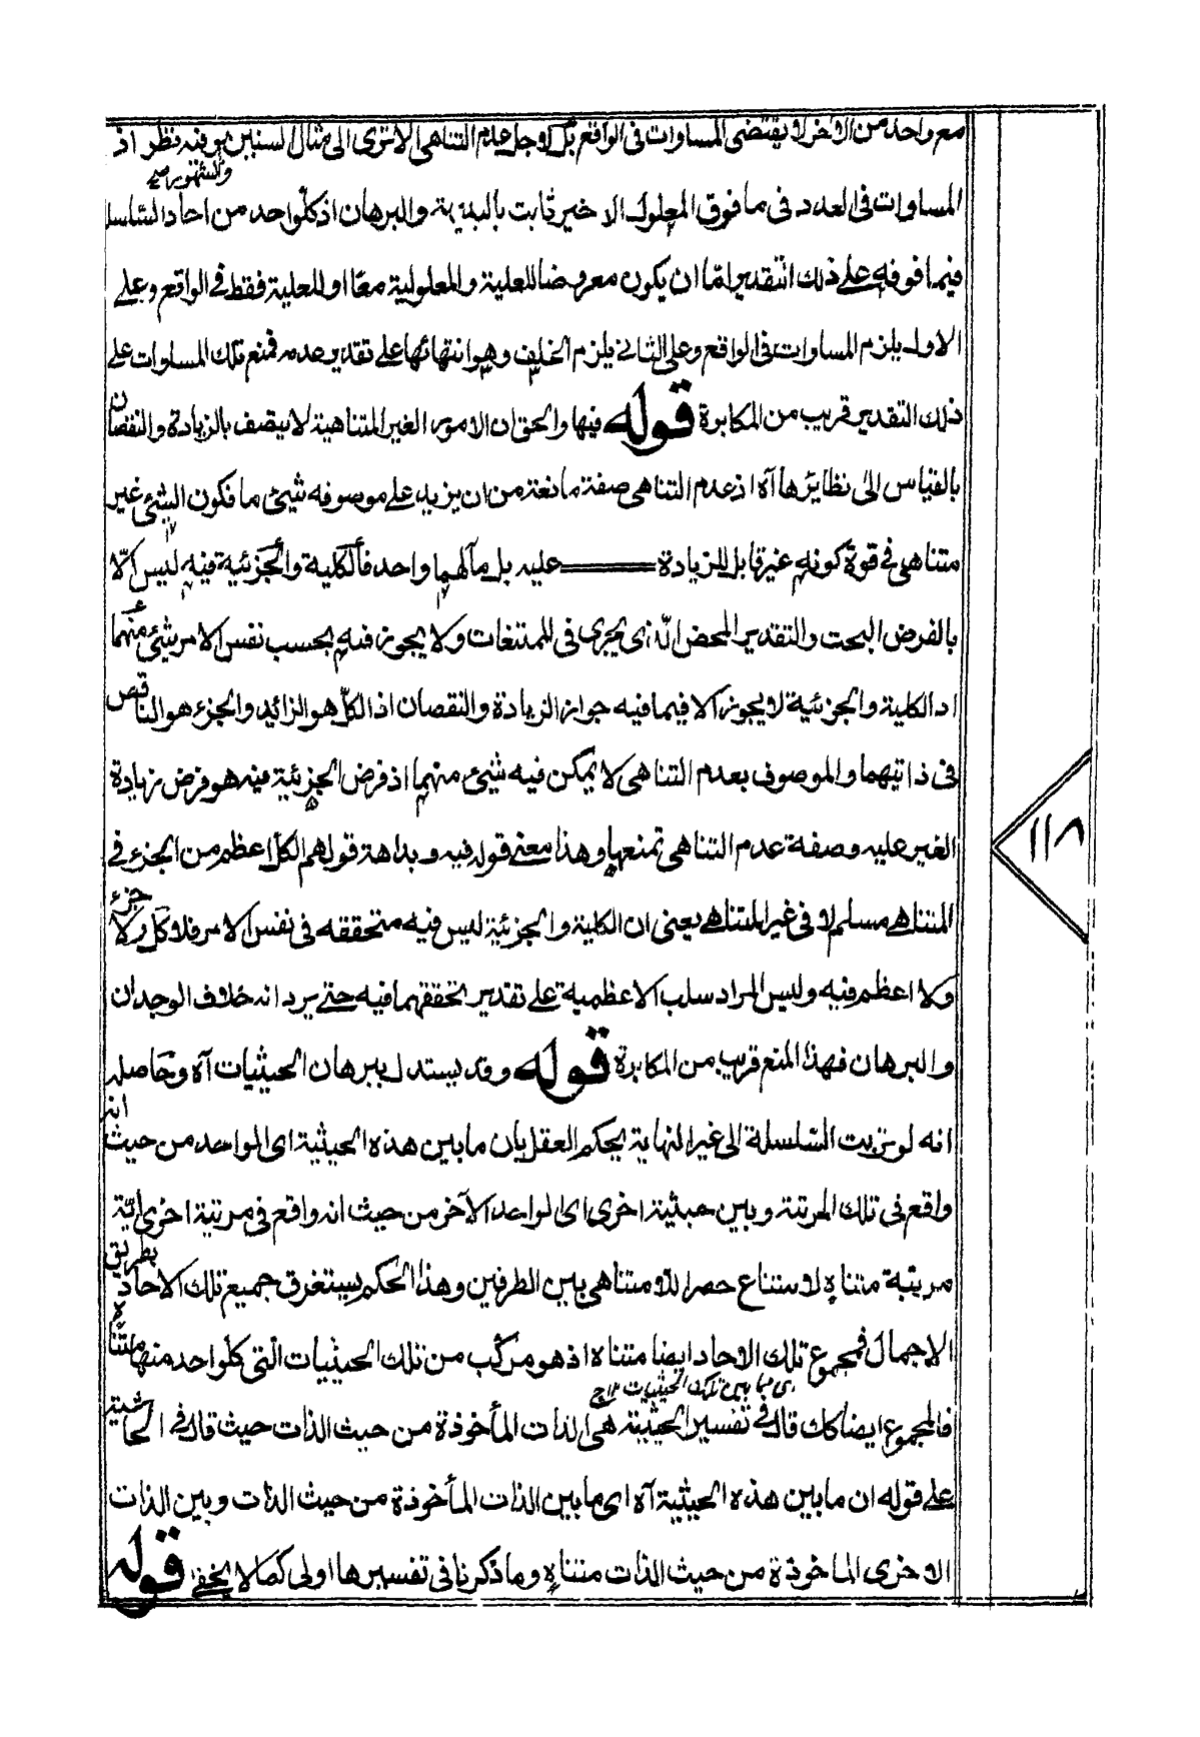 مع واحد من الآخر لا يقتضى المساوات فى الواقع بل لاجل عدم التناهى الا ترى الى مثال السنين هو فيه نظر اذ
المساوات فى العدد فى ما فوق المعلول الاخير ثابت بالبديهة والبرهان اذ كل واحد من احاد السلسلة
فيما فوقه على ذلك التقدير امّا ان يكون معروضا للعلية والمعلولية معًا او للعلية فقط فى الواقع وعلى
الاول يلزم المساوات فى الواقع وعلى الثانى يلزم الخلف وهو انتهائها على تقدير عدمه فمنع تلك المساوات على
ذلك التقدير قريب من المكابرة قوله فيها والحق ان الامور الغير المتناهية لا يتصف بالزيادة والنقصان
بالقياس الى نظايرها آه اذ عدم التناهى صفة مانعة من ان يزيد على موصوفه شيئ ما فكون الشيئ غير
متناهى فى قوة كونه غير قابل للزيادة عليه بل مآلهما واحد فالكلية والجزئية فيه ليس الّا
بالفرض البحت والتقدير المحض الّذى يجرى فى الممتنعات ولا يجوز فيه بحسب نفس الامر شيئ منهما
اذ الكلية والجزئية لا يجوز الا فيما فيه جواز الزيادة والنقصان اذ الكلّ هو الزائد والجزء هو الناقص
فى ذاتيهما والموصوف بعدم التناهى لا يمكن فيه شيئ منهما اذ فرض الجزئية فيه هو فرض زيادة
الغير عليه وصفة عدم التناهى تمنعها وهذا معنى قوله فيه وبداهة قولهم الكل اعظم من الجزء فى
المتناهى مسلم لا فى غير المتناهى يعنى ان الكلية والجزئية ليس فيه متحققه فى نفس الامر فلا كل ولا جزء
ولا اعظم فيه وليس المراد سلب الاعظمية على تقدير تحققهما فيه حتى يرد انه خلاف الوجدان
والبرهان فهذا المنع قريب من المكابرة قوله وقد يستدل ببرهان الحيثيات آه وحاصله
انه لو ترتبت السّلسلة الى غير النهاية يحكم العقل بان ما بين هذه الحيثية اى الواحد من حيث انه
واقع فى تلك المرتبة وبين حيثية اخرى اى الواحد الآخر من حيث انه واقع فى مرتبة اخرى ايّة
مرتبة متناه لامتناع حصر اللامتناهى بين الطرفين وهذا الحكم يستغرق جميع تلك الاحاد بطريق
الاجمال فمجموع تلك الاحاد ايضا متناه اذ هو مركّب من تلك الحيثيات التى كل واحد منها متناه
اى ما بين تلك الحيثيات
فالمجموع ايضا كك قال فى تفسير الحيثية هى الذات المأخوذة من حيث الذات حيث قال فى الحاشية
على قوله ان ما بين هذه الحيثية آه اى ما بين الذات المأخوذة من حيث الذات وبين الذات
الاخرى الماخوذة من حيث الذات متناه وما ذكرنا فى تفسيرها اولى كما لا يخفى قوله
١١٨